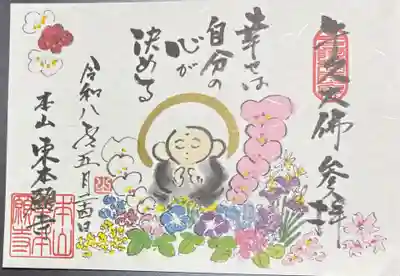 牛久大佛参拝
幸せは
自分の
心が
決める
令和八年五月四日
本山東本願寺
本山
東本
願寺